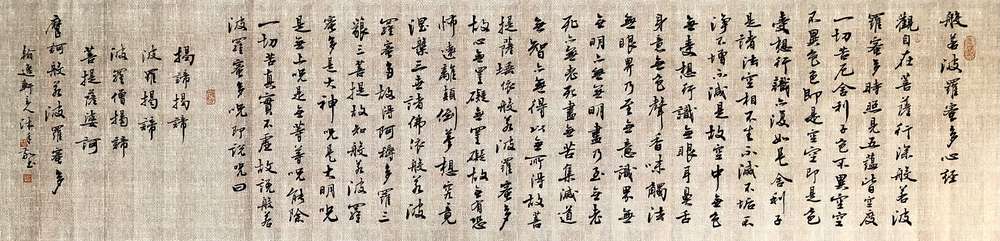 般若波羅蜜多心經
觀自在菩薩行深般若波
羅蜜多時照見五蘊皆空度
一切苦厄舍利子色不異空空
不異色色即是空空即是色
受想行識亦復如是舍利子
是諸法空相不生不滅不垢不
淨不增不減是故空中無色
無受想行識無眼耳鼻舌
身意無色聲香味觸法
無眼界乃至無意識界無
無明亦無無明盡乃至無老
死亦無老死盡無苦集滅道
無智亦無得以無所得故菩
提薩埵依般若波羅蜜多
故心無罣礙無罣礙故無有恐
怖遠離顛倒夢想究竟
涅槃三世諸佛依般若波
羅蜜多故得阿耨多羅三
藐三菩提故知般若波羅
蜜多是大神咒是大明咒
是無上咒是無等等咒能除
一切苦真實不虛故說般若
波羅蜜多咒即說咒曰
揭諦揭諦
波羅揭諦
波羅僧揭諦
菩提薩婆訶
摩訶般若波羅蜜多